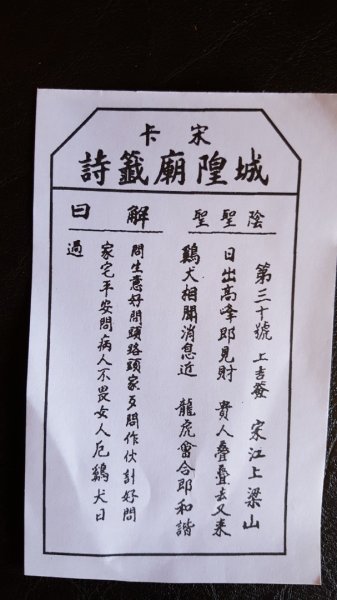 宋卡
城隍廟籤詩
陰聖聖
第三十號 上吉簽 宋江上梁山
日出高峰即見財 貴人疊疊去又来
鷄犬相聞消息近 龍虎會合即和諧
解曰
問生意好問頭路頭家歹問作伙計好問
家宅平安問病人不畏女人厄鷄犬日
過